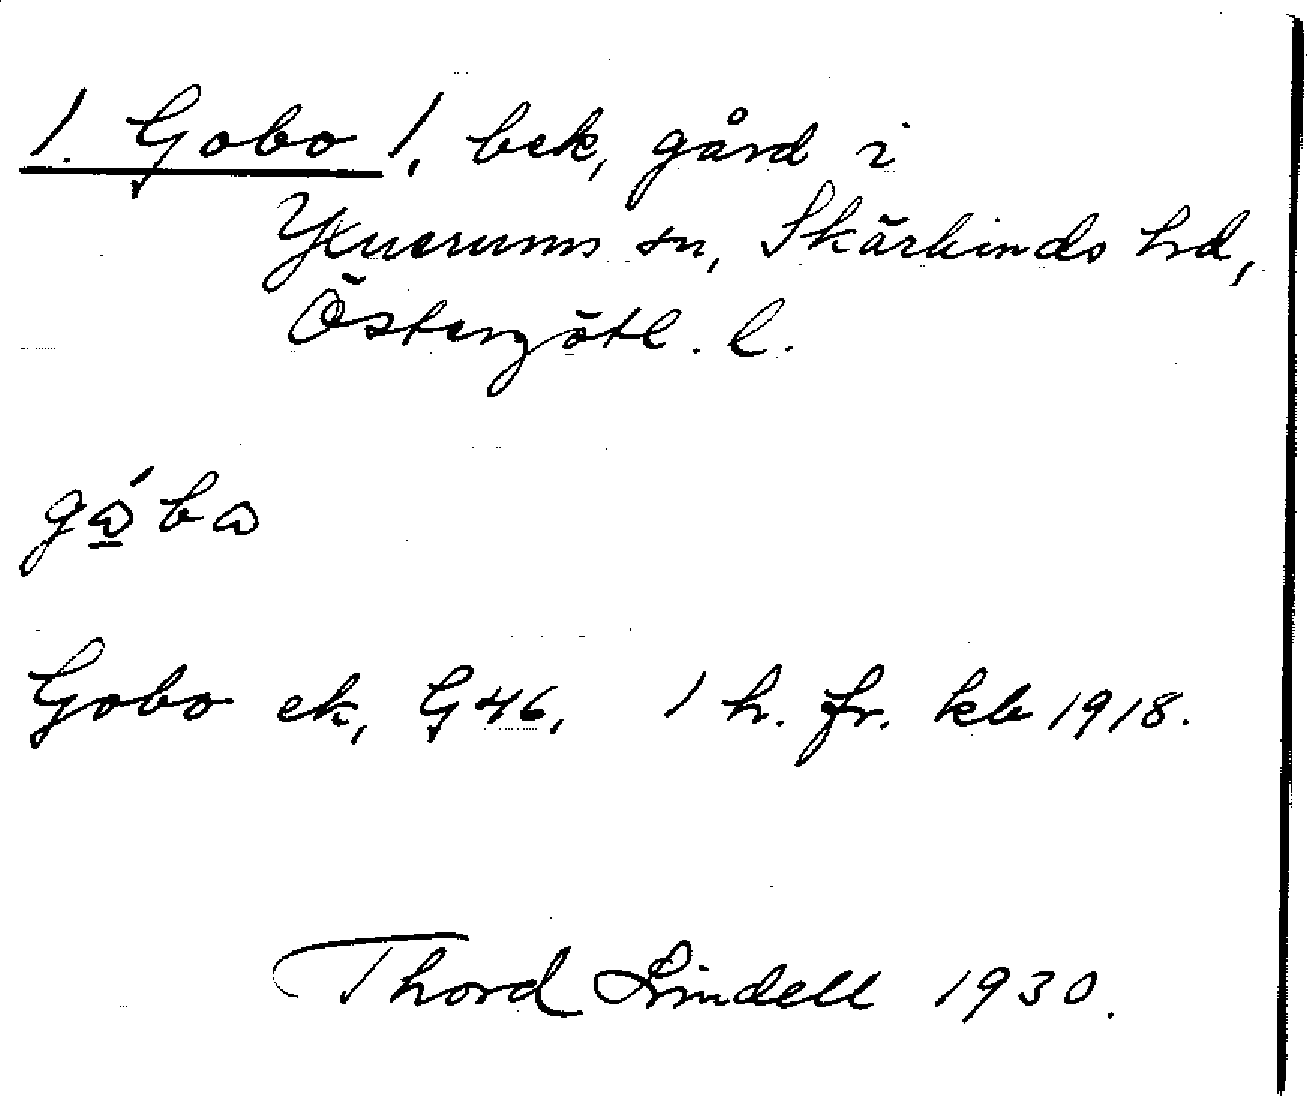 1. Gobo 1, bek, gård i
Yxnerums sn, Skärkinds hd,
Östergötl. l.
gώ̲bω
Gobo ek, G46, 1 h. fr. kb 1918.
Thord Lindell 1930.